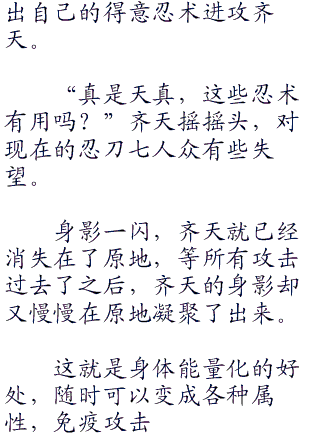 出自己的得意忍术进攻齐
天。
“真是天真，这些忍术
有用吗？”齐天摇摇头，对
现在的忍刀七人众有些失
望。
身影一闪，齐天就已经
消失在了原地，等所有攻击
过去了之后，齐天的身影却
又慢慢在原地凝聚了出来。
这就是身体能量化的好
处，随时可以变成各种属
性，免疫攻击